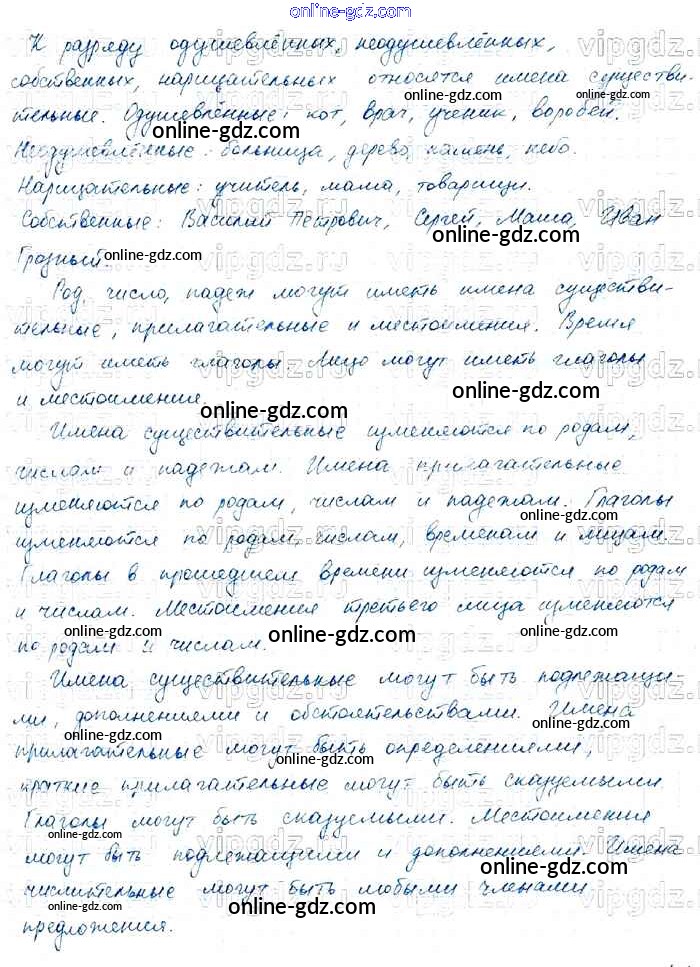 online-gdz.com
К разряду одушевлённых, неодушевлённых,
собственных, нарицательных относятся имена существи-
тельные. Одушевлённые: кот, врач, ученик, воробей.
Неодушевлённые: больница, дерево, камень, небо.
Нарицательные: учитель, мама, товарищи.
Собственные: Василий Петрович, Сергей, Маша, Иван
Грозный.
Род, число, падеж могут иметь имена существи-
тельные, прилагательные и местоимения. Время
могут иметь глаголы. Лицо могут иметь глаголы
и местоимения.
Имена существительные изменяются по родам,
числам и падежам. Имена прилагательные
изменяются по родам, числам и падежам. Глаголы
изменяются по родам, числам, временам и лицам.
Глаголы в прошедшем времени изменяются по родам
и числам. Местоимения третьего лица изменяются
по родам и числам.
Имена существительные могут быть подлежащи-
ми, дополнениями и обстоятельствами. Имена
прилагательные могут быть определениями,
краткие прилагательные могут быть сказуемыми.
Глаголы могут быть сказуемыми. Местоимения
могут быть подлежащими и дополнениями. Имена
числительные могут быть любыми членами
предложения.